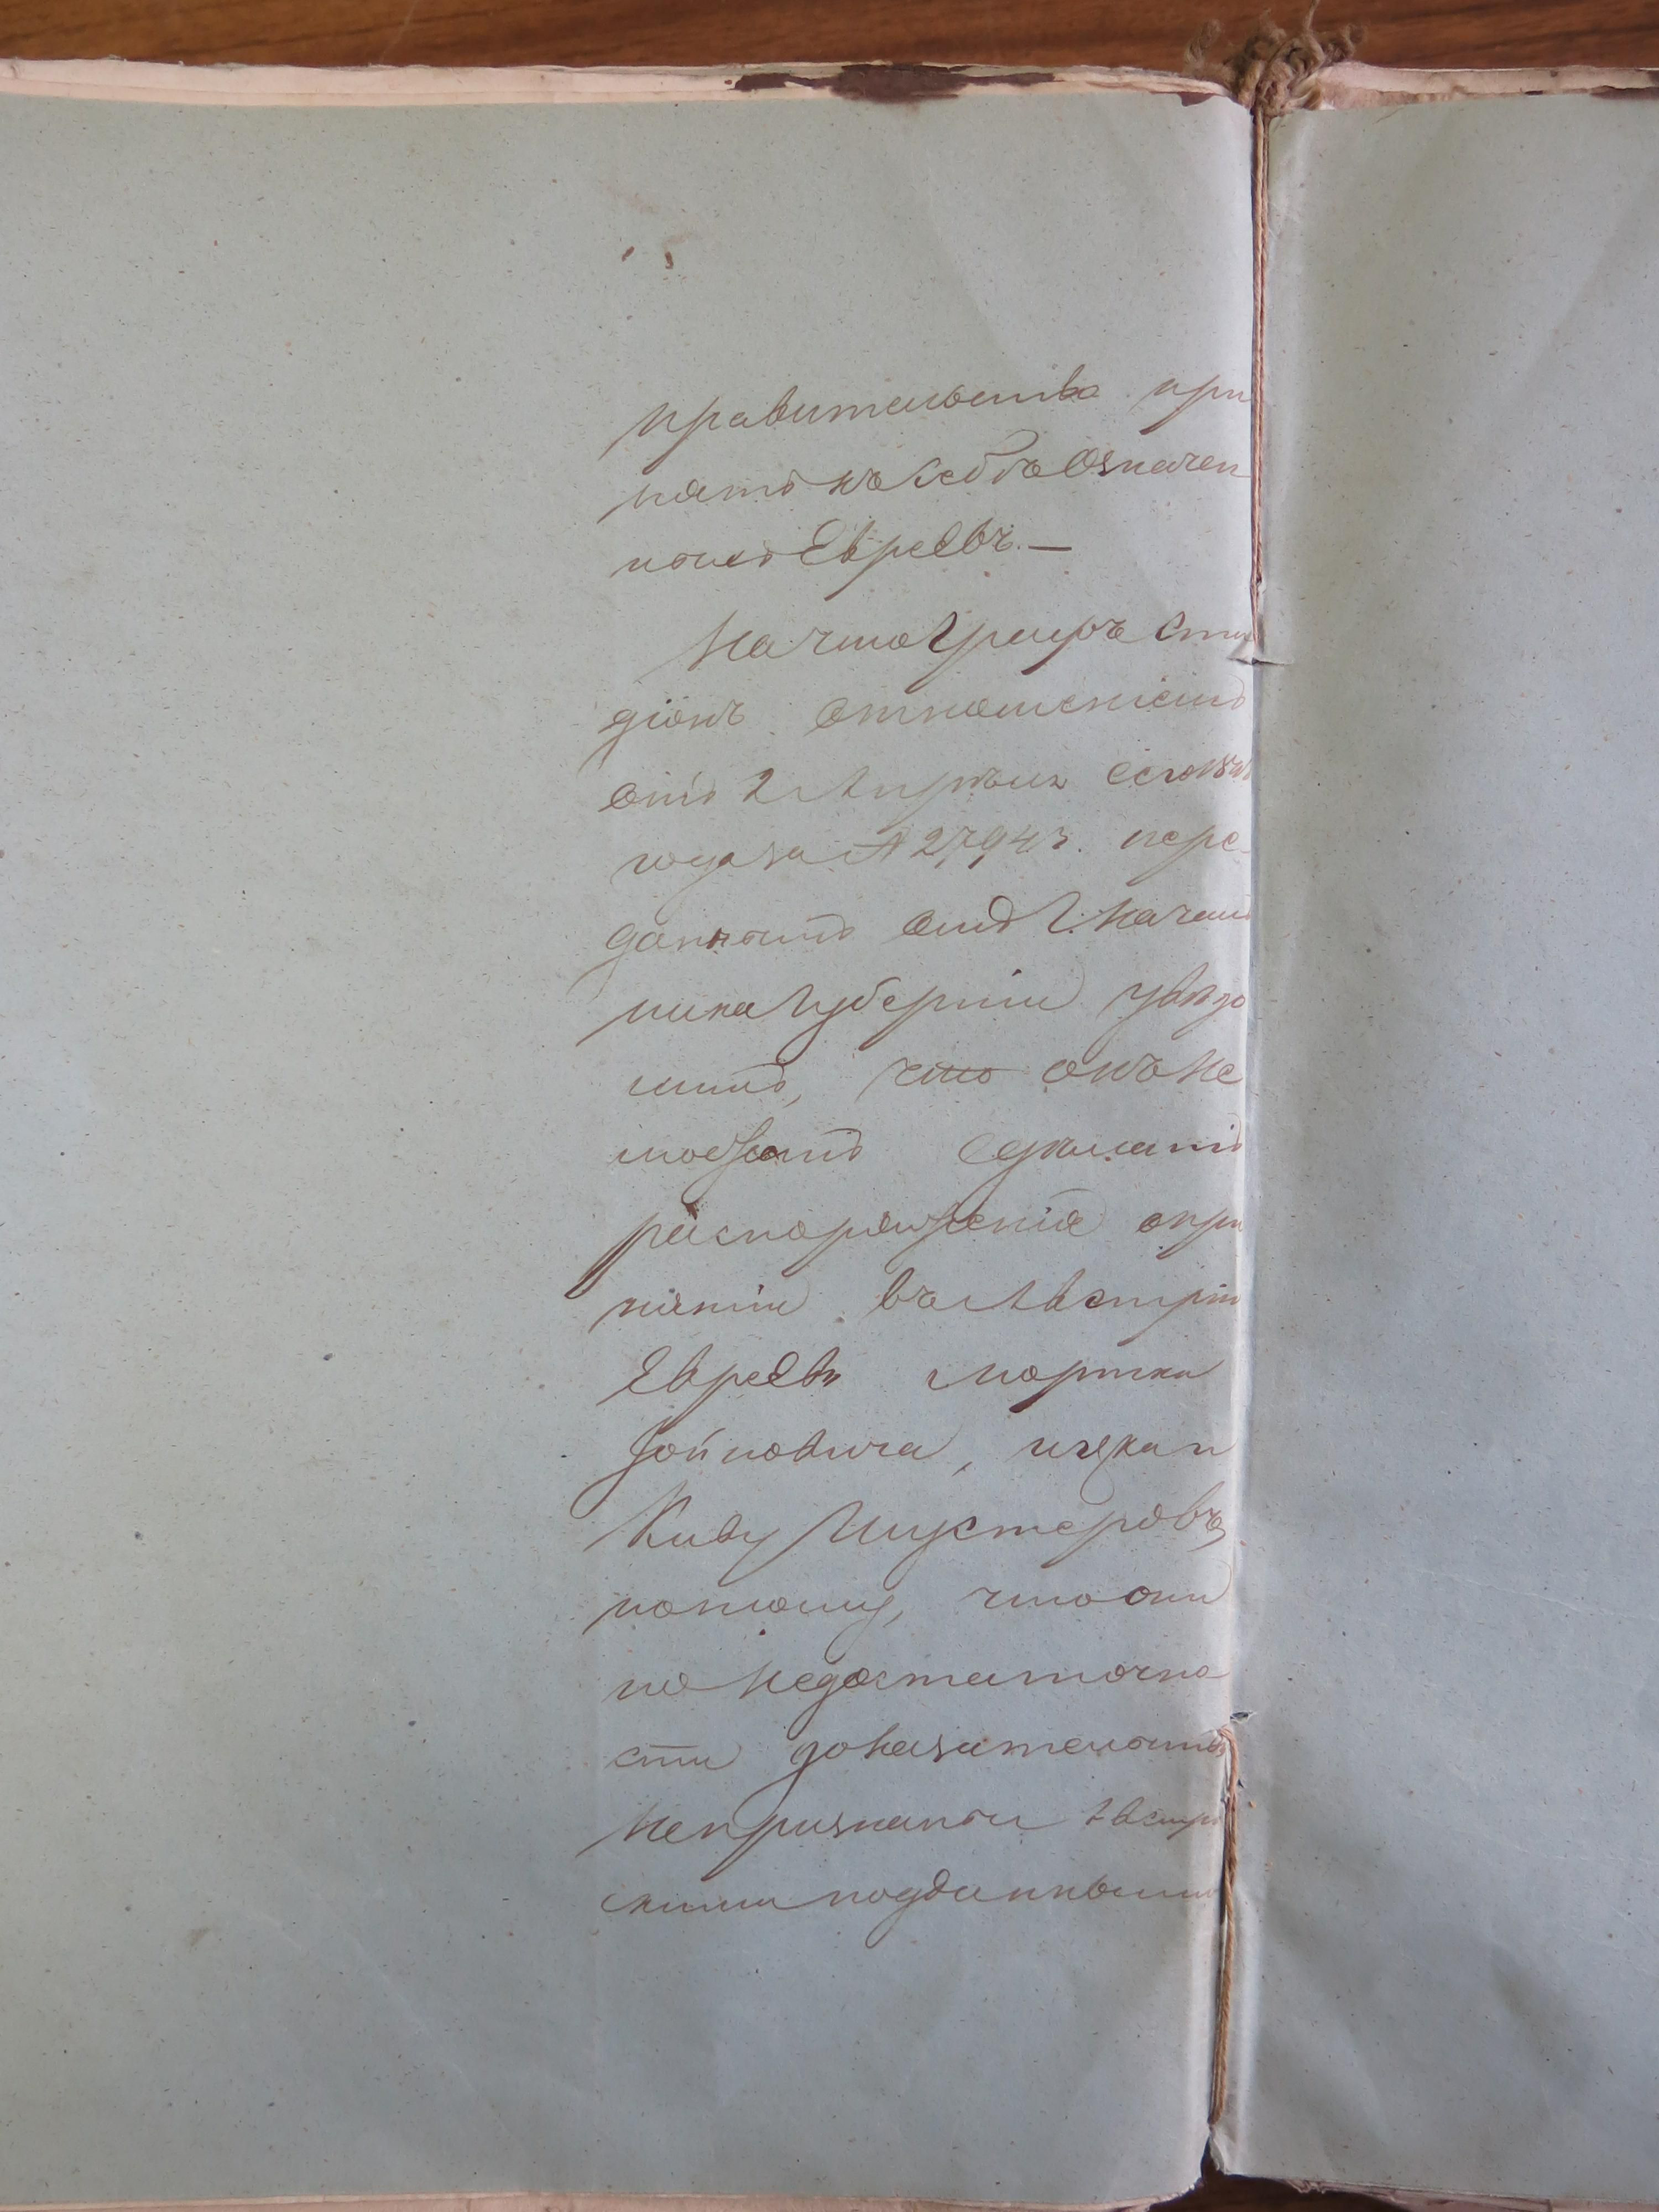 правительства при
нять къ себѣ означен
ныхъ Евреевъ. —
На что Графъ Ста
діонъ отношеніемъ
отъ 2 Апрѣля сего
года за № 2794 г. пере
даннымъ отъ Г. Началь
ника Губерніи увѣдо
милъ, что онъ не
можетъ сдѣлать
распоряженія о при
нятіи въ Австрію
Евреевъ Мортка
и
Киву Шустеровъ,
потому, что они
по недостаточно
сти доказательствъ
не признаны Австрій
скими подданными